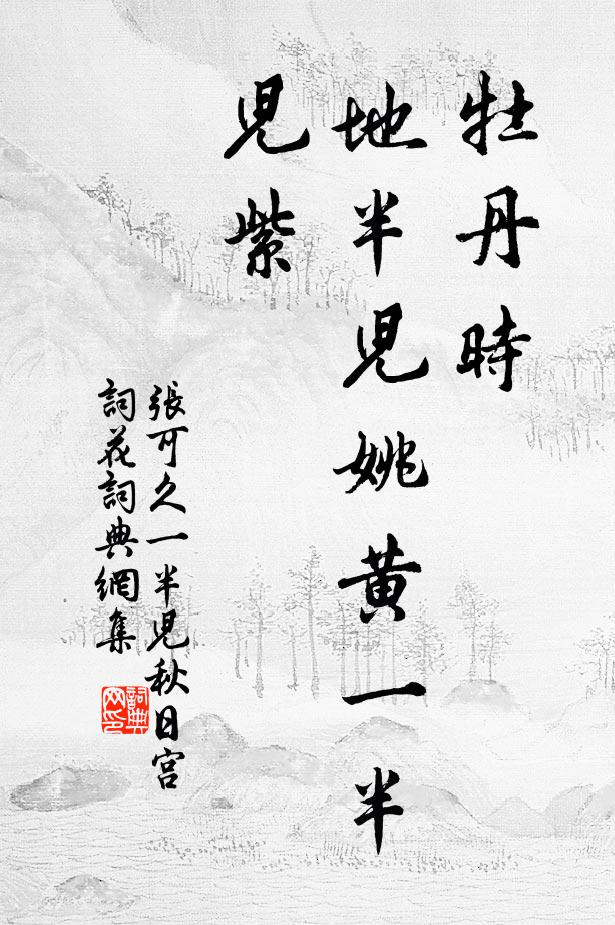 牡丹時
地半兒姚黃一半
兒紫
張可久一半兒秋日宮
詞花詞典網集
詞典
网印